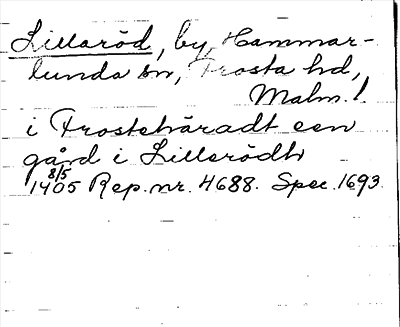 Lillaröd, by, Hammar-
lunda sn, Frosta hd,
Malm. l.
i Frosteháradt een
gård i Lillerödh
8/5
1405 Rep. nr. 4688. Spec. 1693.